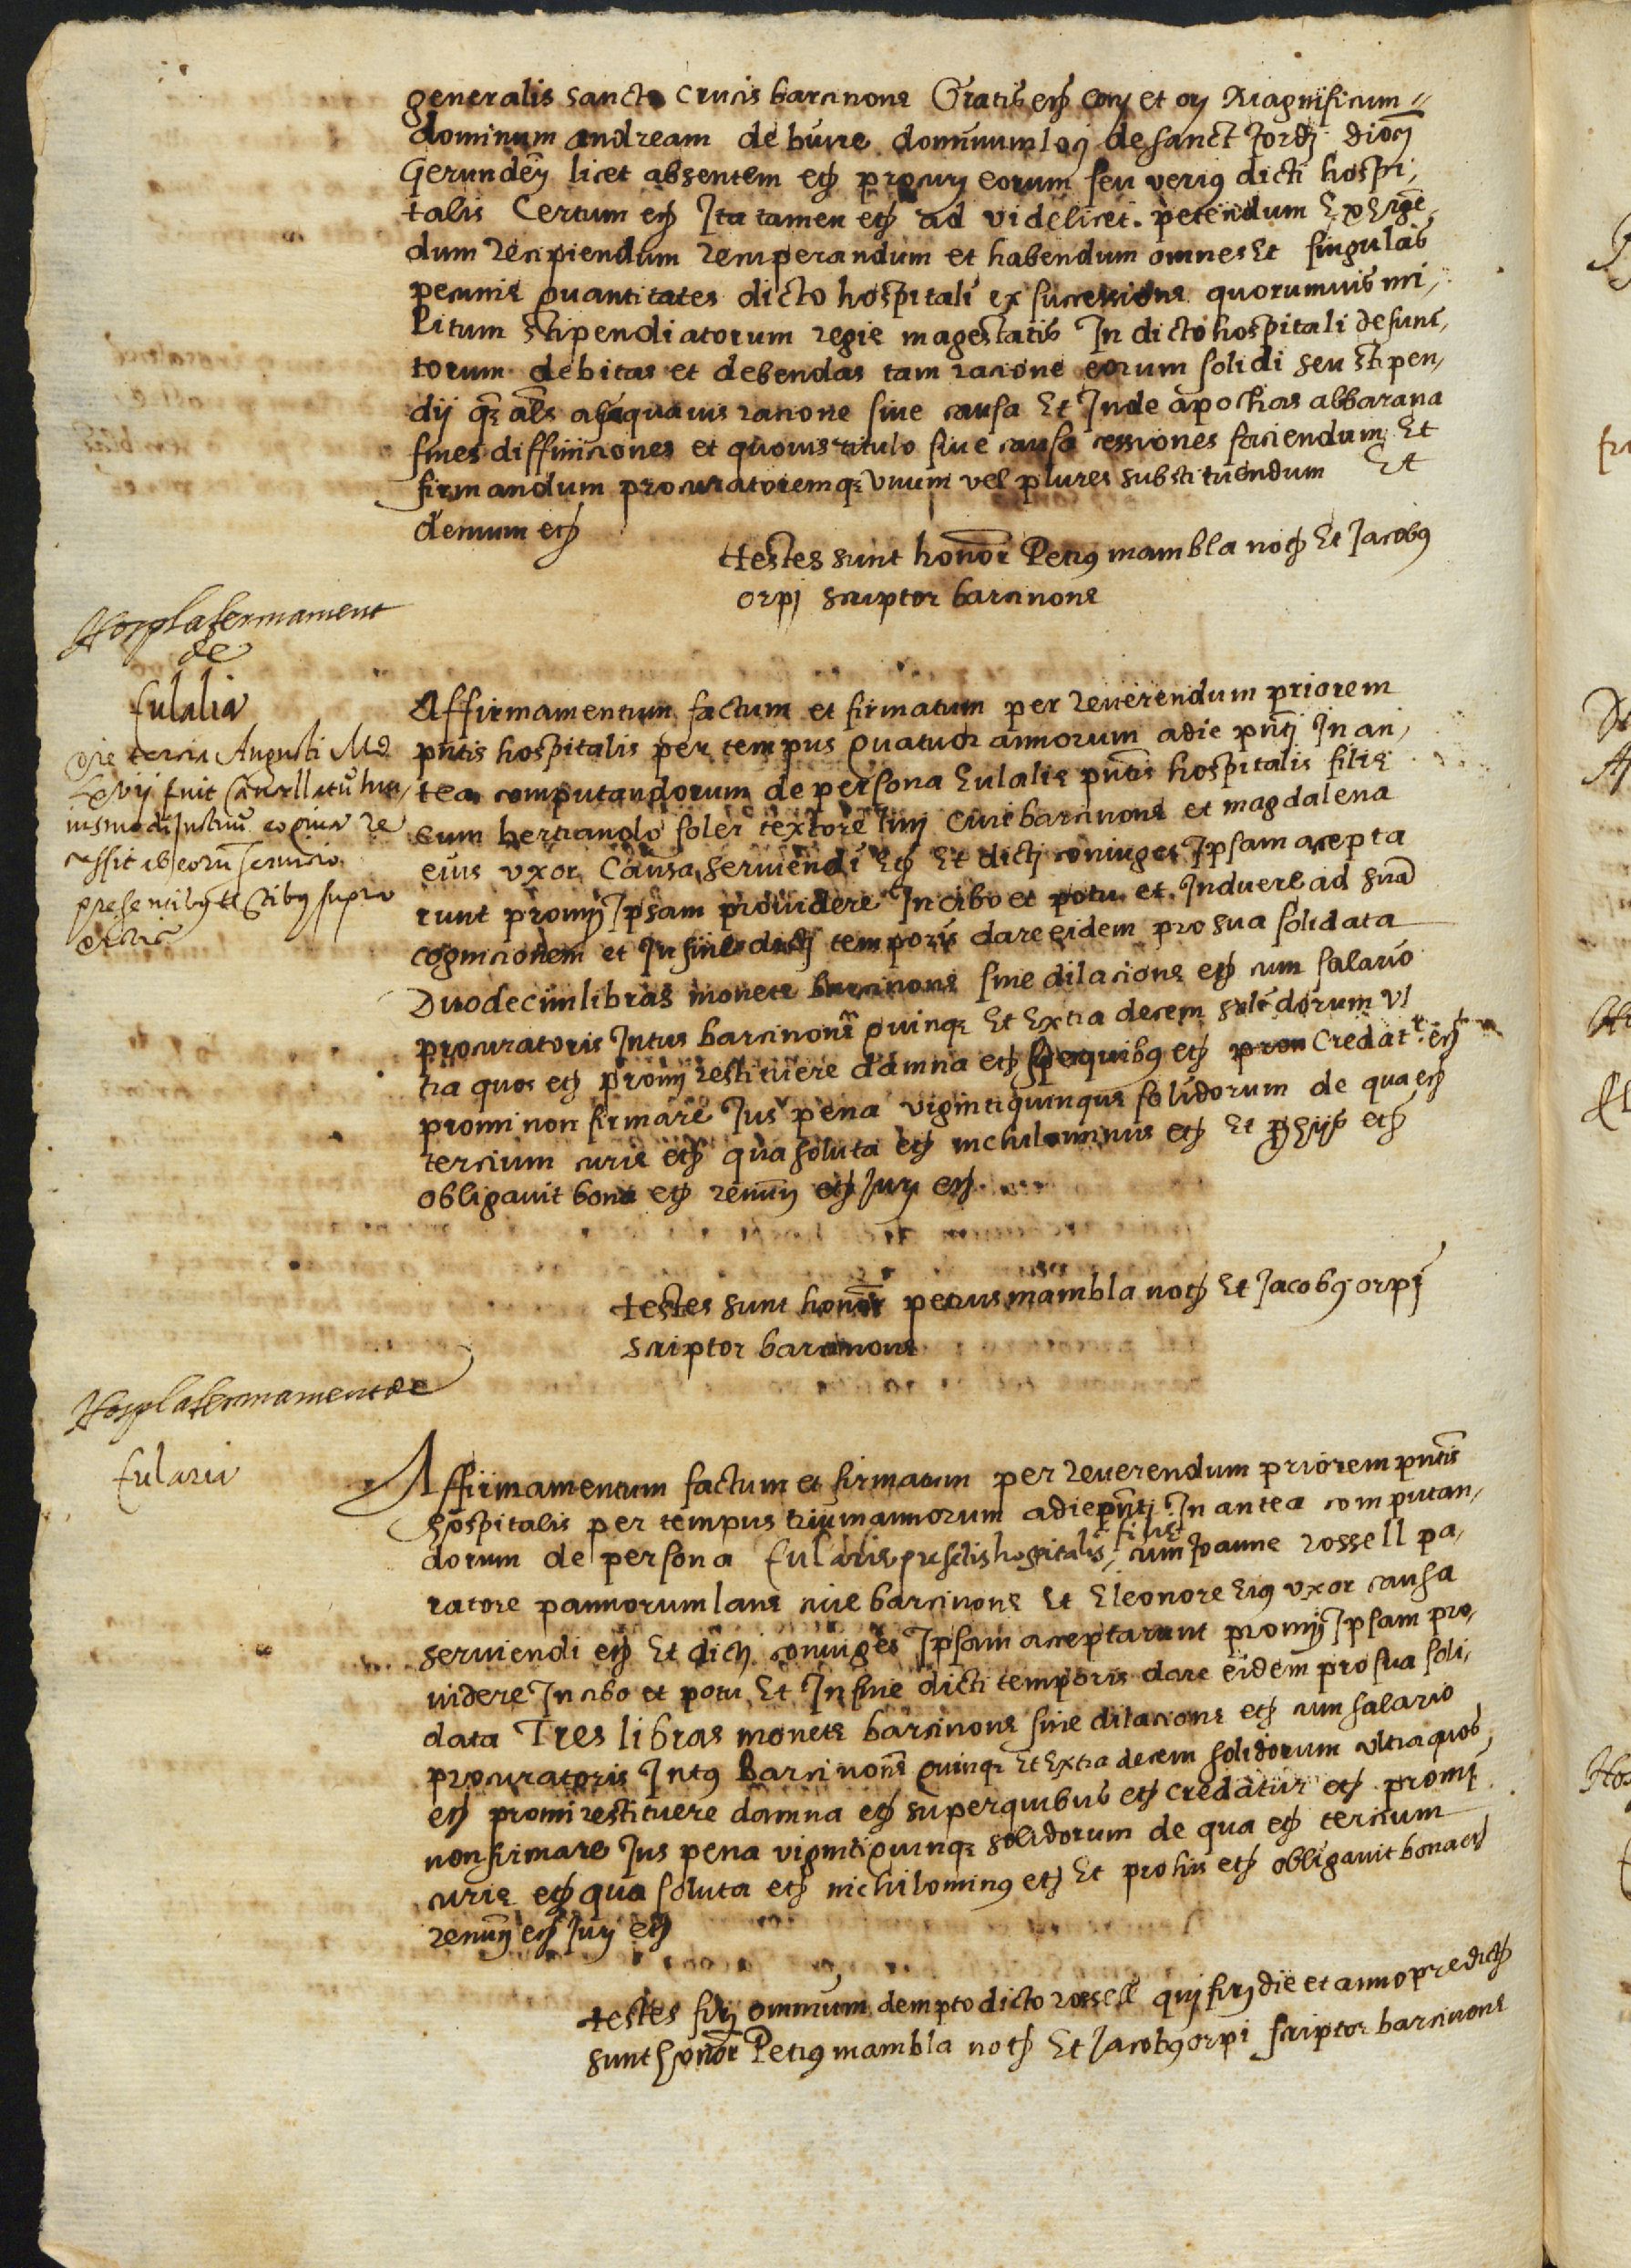 generalis sancte Crucis barcinone Gratis etc̃ con̄ et or̄ Magnificum
dominum andream de bure dominum loci de sanct Jordi dioc̃
Gerunden̄ licet absentem etc̃ procur̄ eorum seu verius dicti hospi,
talis Certum etc̃ Ita tamen etc̃ ad videlicet petendum Exhigẽ,
dum recipiendum recuperandum et habendum omnes Et singulas
pecunie quantitates dicto hospitali ex successione quorumvis mi,
litum stipendiatorum regie magestatis In dicto hospitali defunc,
torum debitas et debendas tam racione eorum solidi seu stipen,
dij q̃ als̃ aliaquavis racione sive causa Et Inde apochas albarana
fines diffiniciones et quovis titulo sive causa cessiones faciendum Et
firmandum procuratoremq; unum vel plures substituendum Et
demum etc̃
testes sunt honor̃ Petrus mambla not̃ Et Jacobus
orpj scriptor barcinone
Hosp̃l afermament
de
Eulalia
die tercia Augusti Md
Lxvij fuit Cancellatũ hu
iusmodi Instrũ. eo quia re
cessit ab eorũ servicio
presentibus testibus supra
dictis
Affirmamentum factum et firmatum per reverendum priorem
pñtis hospitalis per tempus quatuor annorum adie pñti In an,
tea computandorum de persona Eulalie pñtis hospitalis filie
cum bertrando soler textore linj cive barcinone et magdalena
eius uxor Causa serviendi Etc̃ Et dictj coniuges Ipsam acepta
runt promj̃ Ipsam providere In cibo et potu et Induere ad suã
cognicionem et In fine dictj temporis dare eidem pro sua solidata
Duodecim libras monete barcinone sine dilacione etc̃ cum salario
procuratoris Intus barcinonẽ quinq; Et Extra decem solidorum vl
tra quos etc̃ promj̃ restituere damna etc̃ Super quibus etc̃ Credatr etc̃
promi non firmare Jus pena vigintiquinque solidorum de qua etc̃
tercium curie etc̃ qua soluta etc̃ nichilominus etc̃ Et p̃ hijs etc̃
obligavit bona etc̃ renun̄ etc̃ Jur̄ etc̃.
testes sunt honor̃ petrus mambla not̃ Et Jacobus orpj
scriptor barcinone
Hosp̃l afermament de
Eularia
Affirmamentum factum et firmatum per reverendum priorem pñtis
hospitalis per tempus trium annorum adie pñti In antea computan,
dorum de persona Eularie presentis hospitalis filie cum Joanne rossell pa,
ratore pannorum lane cive barcinone Et Eleonore Eius uxor causa
serviendi etc̃ Et dictj coniuges Ipsam acceptarunt promj̃ Ipsam pro,
videre In cibo et potu Et In fine dicti temporis dare eidem pro sua soli,
data Tres libras monete barcinone sine dilacione etc̃ cum salario
procuratoris Intus Barcinonẽ quinq; Et Extra decem solidorum ultra quos
etc̃ promi restituere damna etc̃ super quibus etc̃ credatur etc̃ promj
non firmare Jus pena vigintiquinq; solidorum de qua etc̃ tercium
curie etc̃ qua soluta etc̃ nichilominus etc̃ Et pro his etc̃ obligavit bona etc̃
renun̄ etc̃ Jur̄ etc̃
testes firj̃ omnium dempto dicto rossell qui firj̃ die et anno predictis
sunt honor̃ Petrus mambla not̃ Et Jacobus orpi scriptor barcinone